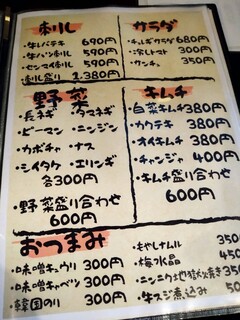 刺し
・牛レバテキ 690円
・牛ハツ刺し 590円
・センマイ刺し 590円
刺し盛り 2,380円
サラダ
・チョレギサラダ 680円
・冷しトマト 300円
・カンチュ 350円
野菜
・長ネギ ・タマネギ
・ピーマン ・ニンジン
・カボチャ ・ナス
・シイタケ ・エリンギ
各300円
・野菜盛り合わせ
600円
キムチ
・白菜キムチ 380円
・カクテキ 380円
・オイキムチ 380円
・チャンジャ 400円
・キムチ盛り合わせ
600円
おつまみ
・味噌キュウリ 300円
・味噌キャベツ 300円
・韓国のり 300円
・もやしナムル 350
・梅水晶 450
・ニンニク地獄焼き 350
・牛スジ煮込み